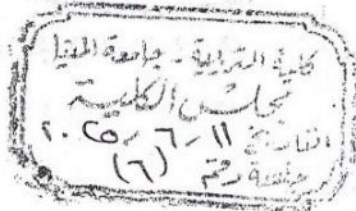 كلية التربية - جامعة المنيا
مجلس الكلية
التاريخ ١١-٦-٢٠٢٥
جلسة رقم (٦)